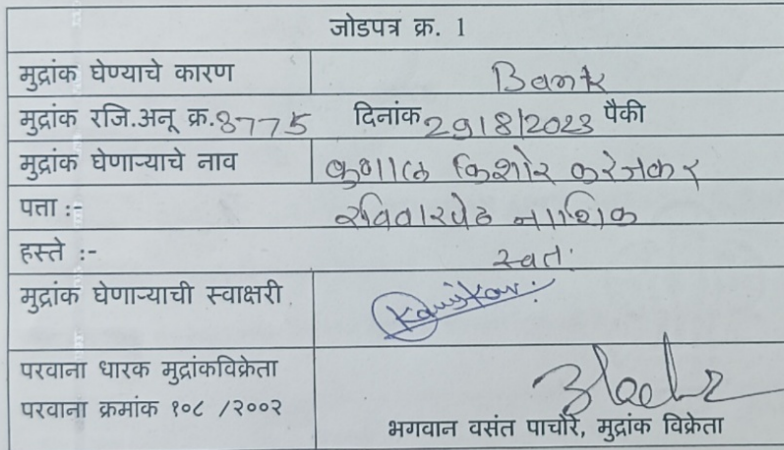 जोडपत्र क्र. 1
मुद्रांक घेण्याचे कारण Bank
मुद्रांक रजि.अनू क्र.8775 दिनांक 29/8/2023 पैकी
मुद्रांक घेणाऱ्याचे नाव कुणाल किशोर करंजकर
पत्ता :- रविवारपेठ नाशिक
हस्ते :- स्वतः
मुद्रांक घेणाऱ्याची स्वाक्षरी
परवाना धारक मुद्रांकविक्रेता
परवाना क्रमांक १०८ /२००२
भगवान वसंत पाचोरे, मुद्रांक विक्रेता